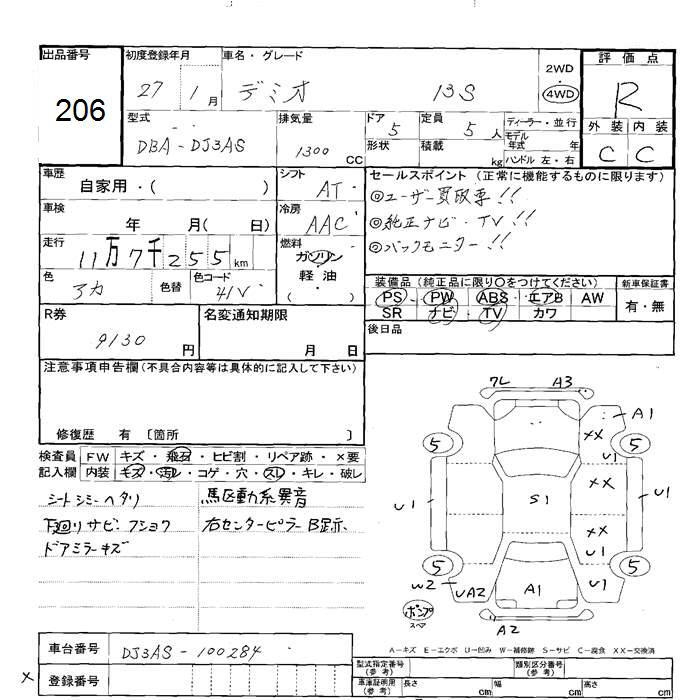 出品番号 206
初度登録年月 27 1月
車名・グレード デミオ 13S
2WD・4WD
評価点 R
外装 内装
C C
型式 DBA-DJ3AS
排気量 1300 CC
ドア 5
形状
定員 5人
積載 kg
ディーラー・並行
モデル年式 年
ハンドル 左・右
車歴 自家用・( )
シフト AT
車検 年 月( 日)
冷房 AAC
走行 11万7千255km
燃料 ガソリン・軽油・( )
色 アカ 色替 色コード 41V
セールスポイント(正常に機能するものに限ります)
◎ユーザー買取車!!
◎純正ナビ・TV!!
◎バックモニター!!
装備品(純正品に限り○をつけてください)
PS・PW ABS・エアB AW
SR ナビ・TV カワ
新車保証書 有・無
後日品
R券 9130円
名変通知期限 月 日
注意事項申告欄(不具合内容等は具体的に記入して下さい)
修復歴 有 〔箇所 〕
検査員記入欄
FW キズ・飛石・ヒビ割・リペア跡・×要
内装 キズ・汚レ・コゲ・穴・スレ・キレ・破レ
シートシミ・ヘタリ
下廻リサビ・フショク
ドアミラーキズ
駆動系異音
右センターピラーB跡、
7L A3
A1
XX
5 5
U1
XX
U1 S1 U1
XX
U1
5 5
W2 UA2 A1 U1
パンプ
スペア
A2
A-キズ E-エクボ U-凹み W-補修跡 S-サビ C-腐食 XX-交換済
車台番号 DJ3AS-100284
× 登録番号
型式指定番号(参考) 類別区分番号(参考)
車庫証明用(参考) 長さ cm 幅 cm 高さ cm